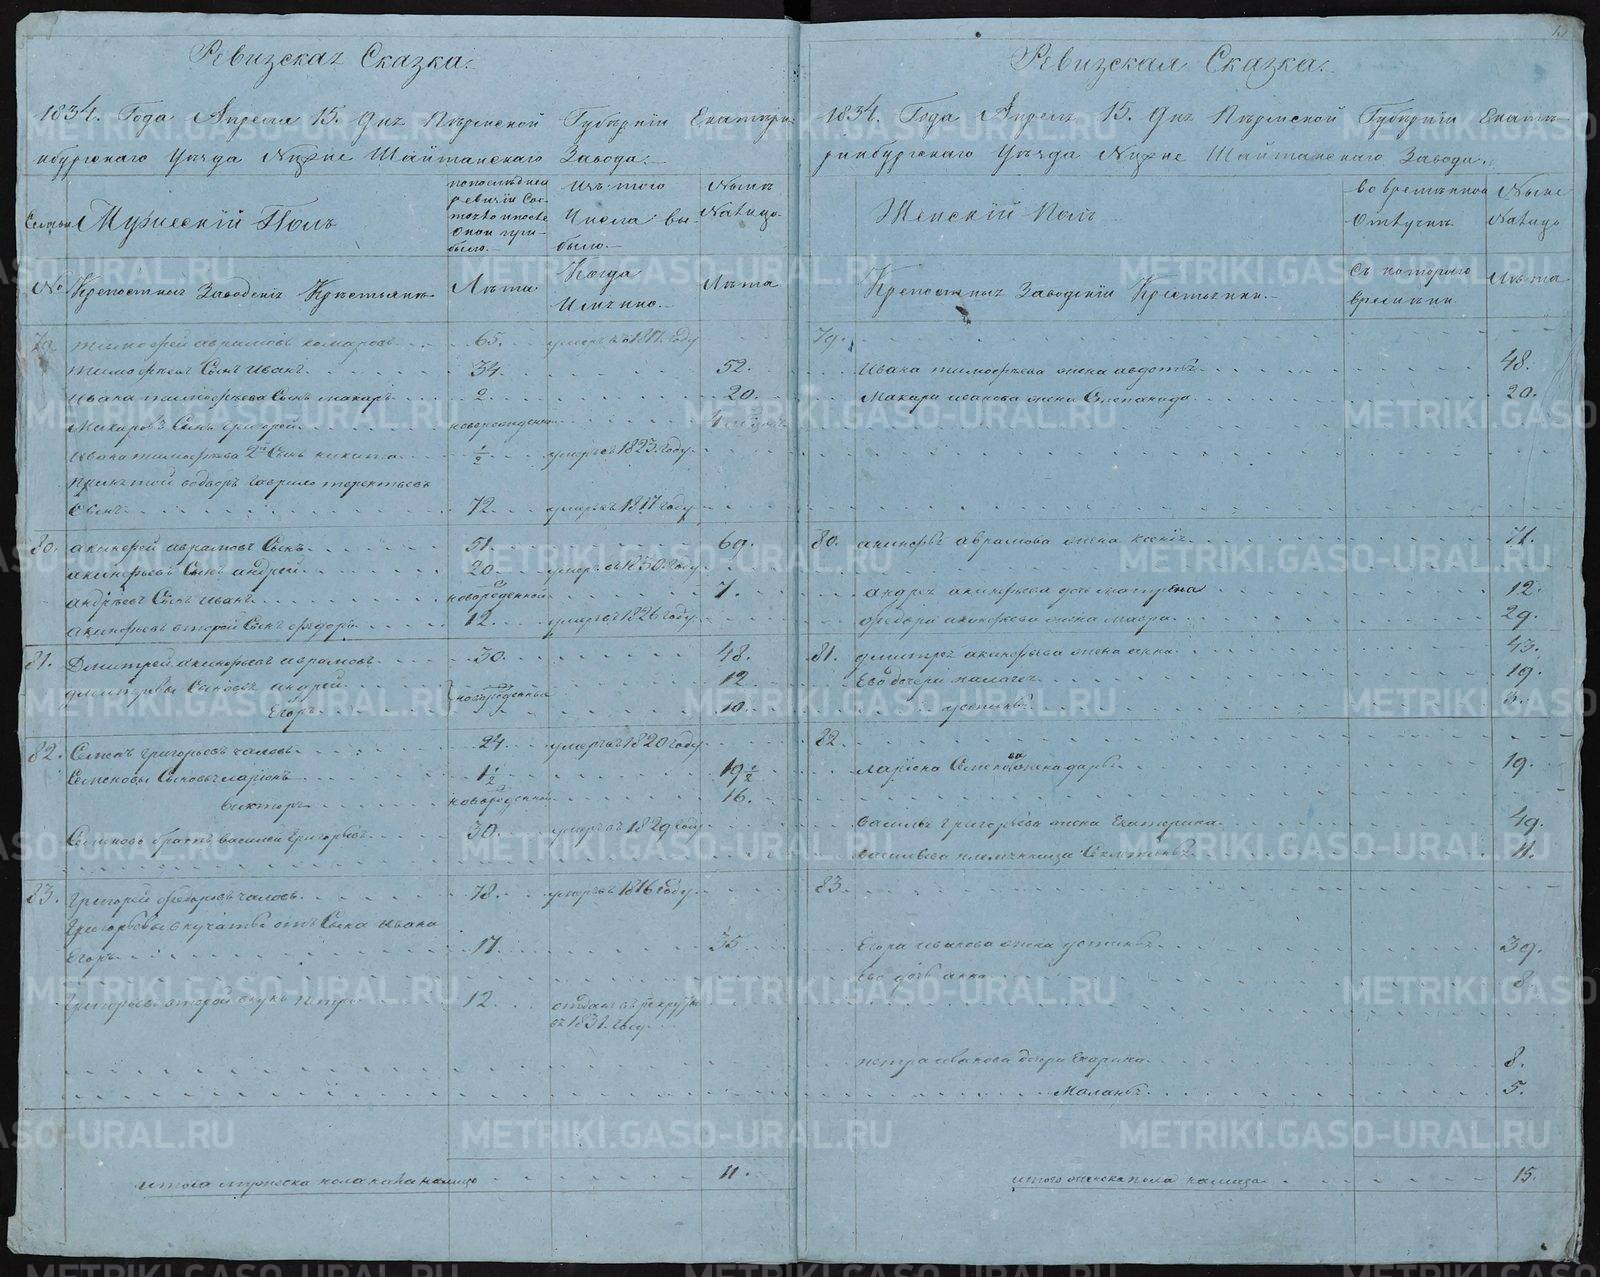 Ревизская Сказка.
1834. Года Апреля 15. Дня Пермской Губернии Екатери-
нбургскаго Уезда Нижне Шайтанскаго Завода.
Семьи Мужескій Полъ
по последней ревизіи Состояло и после Оной прибыло.
Изъ того Числа выбыло.
Ныне Налицо
№ Крепостныхъ Заводскихъ Крестьянъ
Лета
Когда Именно.
Лета
79. Тимофей аврамовъ комаровъ 65. умеръ въ 1817. году
Тимофеевъ Сынъ Иванъ 34. 52.
Ивана тимофеева Сынъ макаръ 2. 20.
Макаровъ Сынъ григорей новорожденной 4
Ивана тимофеева 2й Сынъ никита ½ умеръ въ 1823. году
Гаврило терентьевъ
Сынъ 72. умеръ въ 1817 году
80. акинфей аврамовъ Сынъ 51. 69.
акинфеевъ Сынъ андрей 20 умеръ в 1830. году
андреевъ Сынъ Иванъ новорожденной 7.
акинфеевъ второй Сынъ федоръ 12. умеръ въ 1826 году
81. Дмитрей акинфеевъ аврамовъ 30. 48.
дмитриевы Сыновья андрей 12
Егоръ новорожденные 10.
82. Семенъ григорьевъ чаловъ 24. умеръ въ 1820 году
Семеновы Сыновья ларіонъ 1½ 19½
викторъ новорожденной 16.
Семеновъ братъ василей григорьевъ 30. умеръ въ 1829 году
83. Григорей федоровъ чаловъ 78. умеръ въ 1816 году
Григорьевы внучата отъ Сына Ивана
Егоръ 17. 35
Григорьевъ второй внукъ петръ 12. отданъ въ рекруты
въ 1831. году
итого мужеска пола налицо 11.
Ревизская Сказка.
1834. Года Апреля 15. Дня Пермской Губерніи Екате-
ринбургскаго Уезда Нижне Шайтанскаго Завода.
Женскій Полъ
во временной Отлучке
Ныне Налицо
Крепостныхъ Заводскихъ Крестьянъ.
Съ котораго времени
Лета
79.
Ивана тимофеева жена авдотья 48.
Макара иванова жена Степанида 20.
80. акинфья аврамова жена ксенія 71.
андрея акинфьева дочь матрена 12.
федора акинфеева жена мавра 29.
81. дмитрея акинфьева жена анна 43.
Ево дочери палагея 19.
устинья
82.
ларіона Семенова жена дарья 19.
василья григорьева жена Екатерина 49.
васильева племянница 11.
83.
Егора иванова жена устинья 39.
ево дочь анна 8.
петра иванова дочери 8.
Маланья 5.
итого женска пола налицо 15.
METRIKI.GASO-URAL.RU